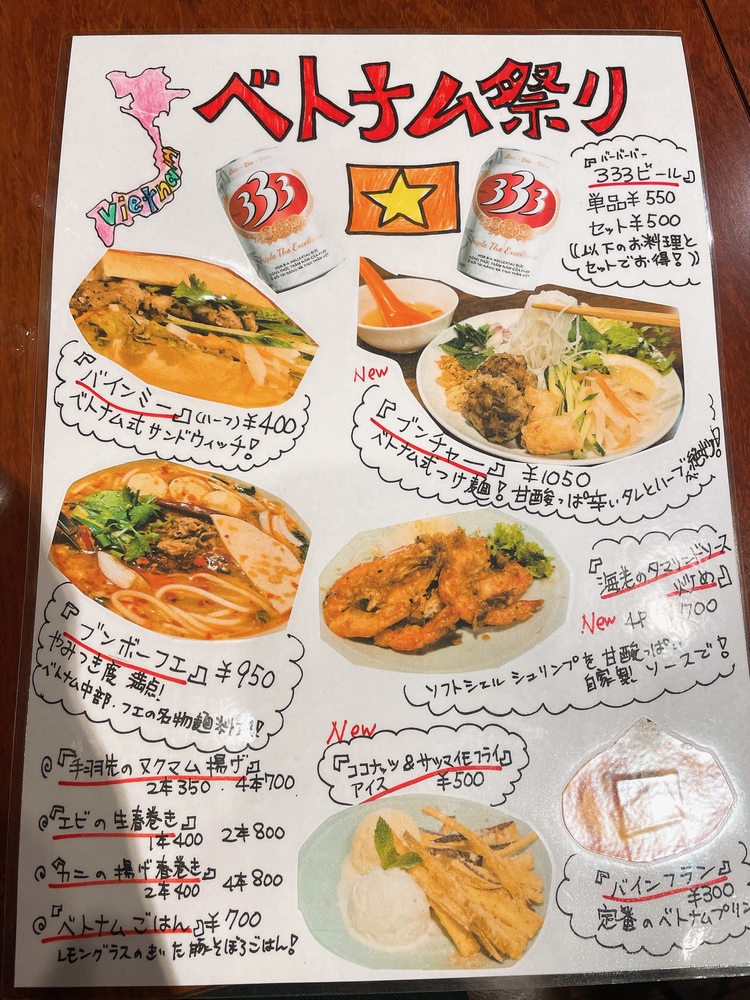 ベトナム祭り
Vietnam
333
333
『バーバーバー
333ビール』
単品¥550
セット¥500
((以下のお料理と
セットでお得!))
『バインミー』(ハーフ)¥400
ベトナム式サンドウィッチ!
New
『ブンチャー』¥1050
ベトナム式つけ麺!甘酸っぱ辛いタレとハーブが絶妙!
『ブンボーフエ』¥950
やみつき度満点!
ベトナム中部・フエの名物麺料理!!
『海老のタマリンドソース
炒め』
New 4P ¥700
ソフトシェルシュリンプを甘酸っぱい
自家製ソースで!
『手羽先のヌクマム揚げ』
2本350・4本700
『エビの生春巻き』
1本400 2本800
『カニの揚げ春巻き』
2本400 4本800
『ベトナムごはん』¥700
レモングラスのきいた豚そぼろごはん!
New
『ココナッツ&サツマイモフライ』
アイス ¥500
『バインフラン』
¥300
定番のベトナムプリン